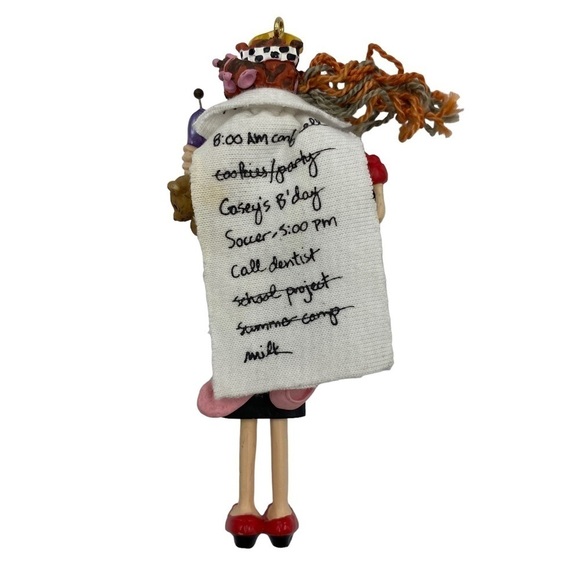 8:00 AM conf call
cookies/party
Casey's B'day
Soccer-5:00 PM
Call dentist
school project
summer camp
milk